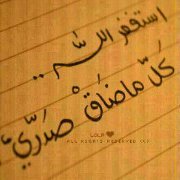 استغفر الله ..
كل ما ضاق صدري
LOLA
ALL RIGHTS RESERVED (C)